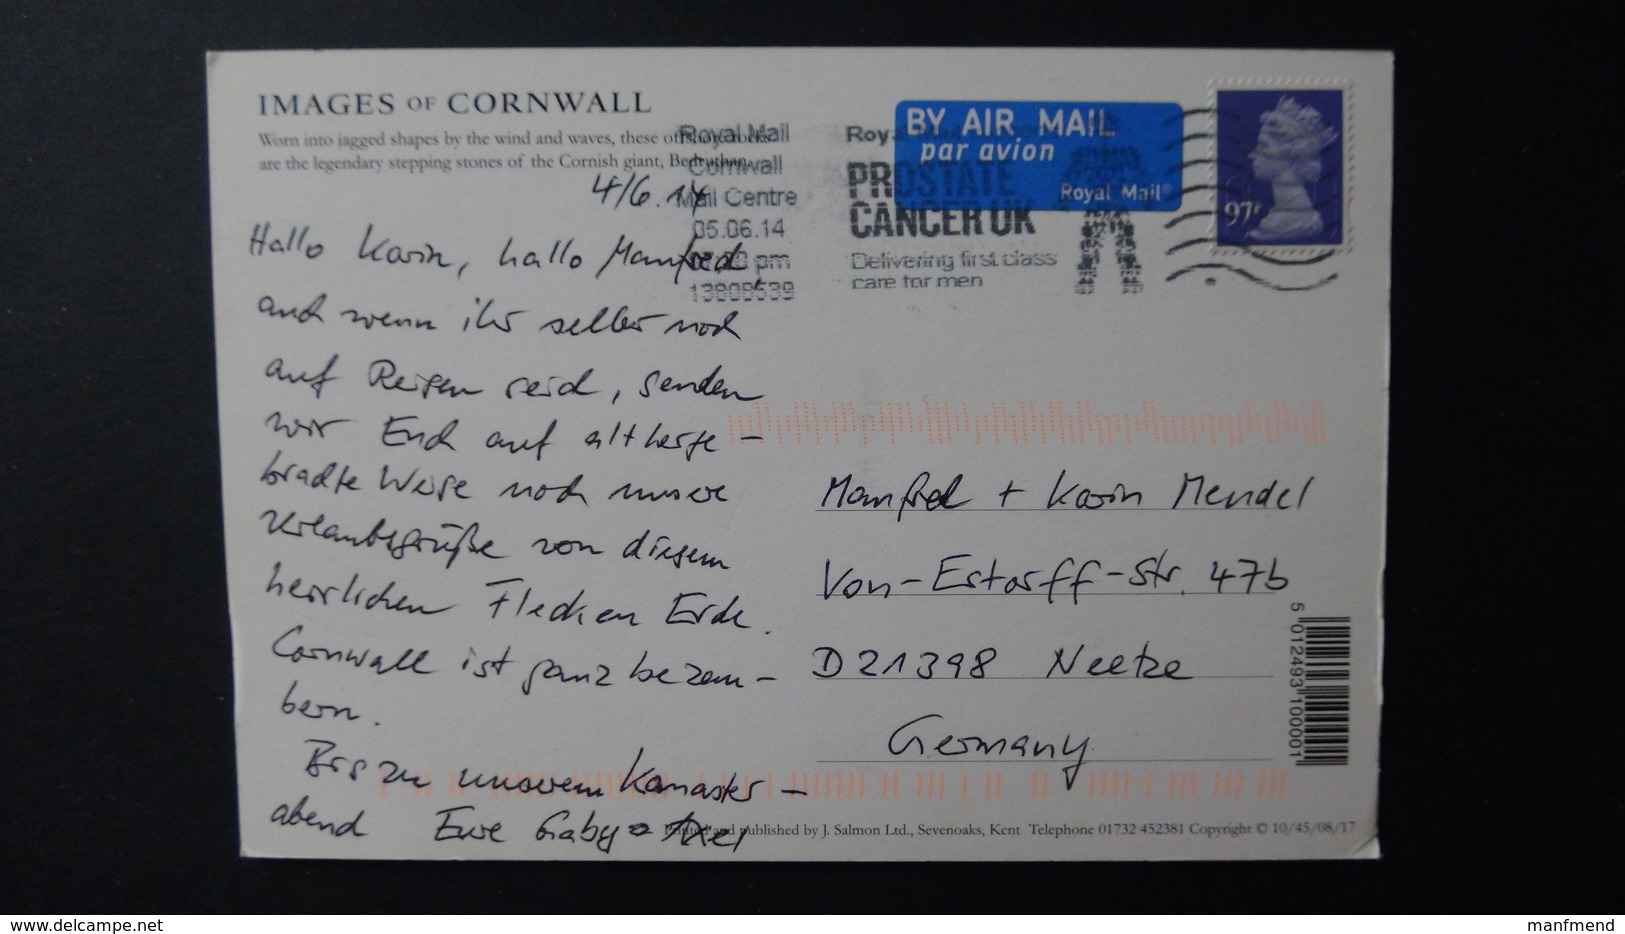 IMAGES OF CORNWALL
Worn into jagged shapes by the wind and waves, these offshore rocks
are the legendary stepping stones of the Cornish giant, Bedruthan.
4/6.14
Royal Mail
Cornwall
Mail Centre
05.06.14
pm
13808539
PROSTATE
CANCER UK
Delivering first class
care for men
BY AIR MAIL
par avion
Royal Mail®
97P
Hallo Karin, hallo Manfred,
auch wenn ihr selber noch
auf Reisen seid, senden
wir Euch auf altherge-
brachte Weise noch unsere
Urlaubsgrüße von diesem
herrlichen Flecken Erde.
Cornwall ist ganz bezau-
bern.
Bis zu unserem Kanaster-
abend Eure Gaby + Axel
Manfred + Karin Mendel
Von-Estorff-Str. 47b
D 21398 Neetze
Germany
5 012493 100001
Printed and published by J. Salmon Ltd., Sevenoaks, Kent Telephone 01732 452381 Copyright © 10/45/08/17
www.delcampe.net
manfmend